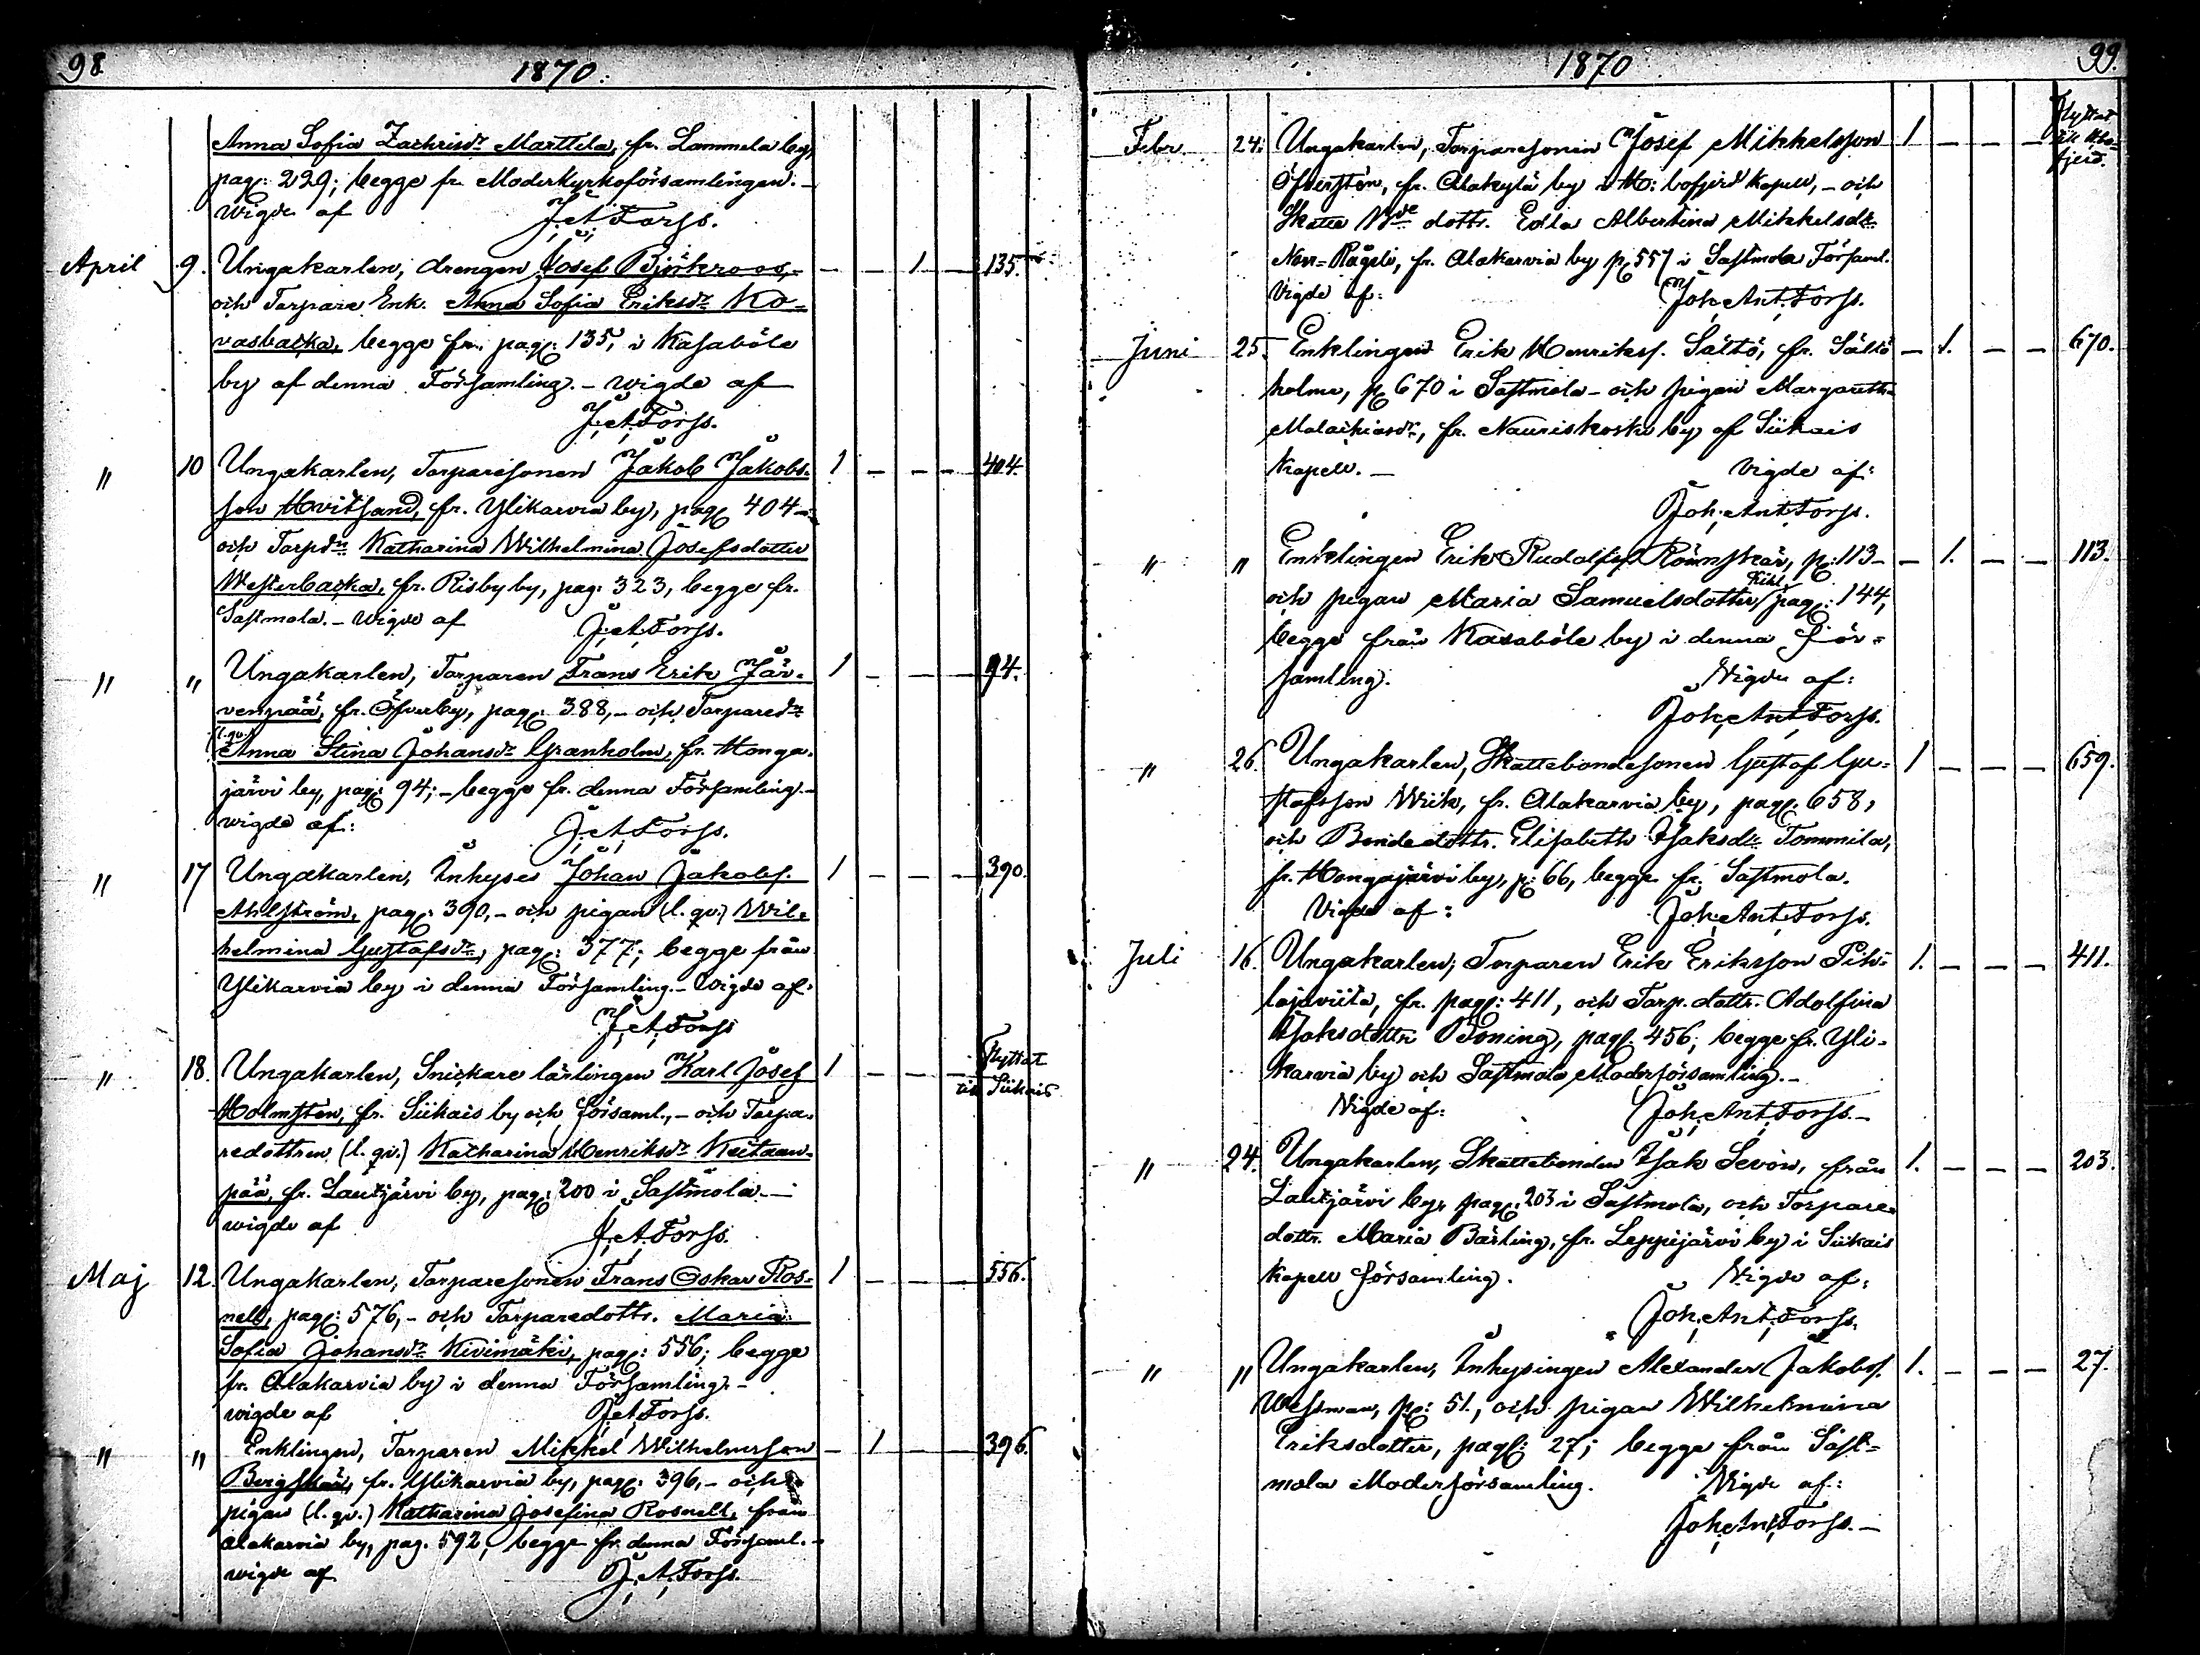 98
1870.
Anna Sofia Zachrisdr Marttila, fr. Lammela by,
pag: 229; begge fr. Moderkyrkoförsamlingen. –
Wigde af J. A. Forss.
April 9. Ungakarlen, drengen Josef Björkroos, – – 1 – 135.
och Torpare Enk. Anna Sofia Eriksdr Ko-
vasbacka, begge fr. pag: 135, i Kasaböle
by af denna Församling. – Wigde af
J. A. Forss.
" 10 Ungakarlen, Torparesonen Jakob Jakobs- 1 – – – 404
son Hvitsand, fr. Ylikarvia by, pag 404 –
och Torpdn Katharina Wilhelmina Josefsdotter
Westerbacka, fr. Risby by, pag: 323, begge fr.
Sastmola. – Wigde af J. A. Forss.
" " Ungakarlen, Torparen Frans Erik Jär- 1 – – – 94.
venpää, fr. Öfverby, pag: 388, – och Torparedr
(l. qv.)
Anna Stina Johansdr Granholm, fr. Honga-
järvi by, pag: 94; – begge fr. denna Församling. –
wigde af: J. A. Forss.
" 17 Ungakarlen, Inhyses Johan Jakobs. 1 – – – 390.
Ahlström, pag: 390, – och pigan (l. qv.) Wil-
helmina Gustafsdr, pag: 377; begge från
Ylikarvia by i denna Församling. – Wigde af:
J. A. Forss
" 18. Ungakarlen, Snickare lärlingen Karl Josef 1 – – – Flyttat
till Siikais
Holmstén, fr. Siikais by och församl., – och Torpa-
redottren (l. qv.) Katharina Henriksdr Keitaan-
pää, fr. Lautjärvi by, pag: 200 i Sastmola. –
wigde af J. A. Forss.
Maj 12. Ungakarlen, Torparesonen Frans Oskar Ros- 1 – – – 556.
nell, pag: 576, – och Torparedottr. Maria
Sofia Johansdr Kivimäki, pag: 556; begge
fr. Alakarvia by i denna Församling. –
wigde af J. A. Forss.
" " Enklingen, Torparen Mikkel Wilhelmsson – 1 – – 396.
Bergskär, fr. Ylikarvia by, pag: 396, – och
pigan (l. qv.) Katharina Josefina Rosnell, från
Alakarvia by, pag. 592, begge fr. denna Församl. –
wigde af J. A. Forss.
1870
99.
Febr. 24. Ungakarlen, Torparesonen Josef Mikkelsson 1 – – – Flyttat
till
fjerd.
Öfversten, fr. Alakylä by i kapell, – och
Skatte dottr. Edla Albertina Mikkelsdr
Norr-Rågels, fr. Alakarvia by p. 557 i Sastmola Församl.
Vigde af: Joh. Ant. Forss.
Juni 25. Enklingen Erik Henriks. Sältö, fr. Sältö – 1. – – 670.
holme, p. 670 i Sastmola – och pigan Margareta
Malachiasdr, fr. Nauriskoski by af Siikais
Kapell. – Vigde af:
Joh. Ant. Forss.
" " Enklingen Erik Rudolfs. Rönnskär, p: 113 – – 1. – – 113.
och pigan Maria Samuelsdotter pag: 144,
begge från Kasaböle by i denna För-
samling. Wigde af:
Joh. Ant. Forss.
" 26. Ungakarlen, Skattebondesonen Gustaf Gu- 1 – – – 659.
stafsson Wiik, fr. Alakarvia by, pag. 658,
och Bondedottr. Elisabeth Isaksdr Tommila,
fr. Hongajärvi by, p: 66, begge fr. Sastmola.
Vigde af: Joh. Ant. Forss.
Juli 16. Ungakarlen, Torparen Erik Eriksson Pih- 1. – – – 411.
lajaviita, fr. pag: 411, och Torp. dottr. Adolfina
Isaksdottr Boning, pag. 456; begge fr. Yli-
karvia by och Sastmola Moderförsamling. –
Wigde af: Joh. Ant. Forss. –
" 24. Ungakarlen, Skattebonden Isak Sevón, från 1. – – – 203.
Lautjärvi by, pag: 203 i Sastmola, och Torpare-
dottr. Maria Bärling, fr. Leppijärvi by i Siikais
Kapell församling. Wigde af:
Joh. Ant. Forss.
" " Ungakarlen, Inhysingen Alexander Jakobs. 1. – – – 27.
Wessman, p: 51., och pigan Wilhelmina
Eriksdotter, pag: 27; begge från Sast-
mola Moderförsamling. Wigde af:
Joh. Ant. Forss. –